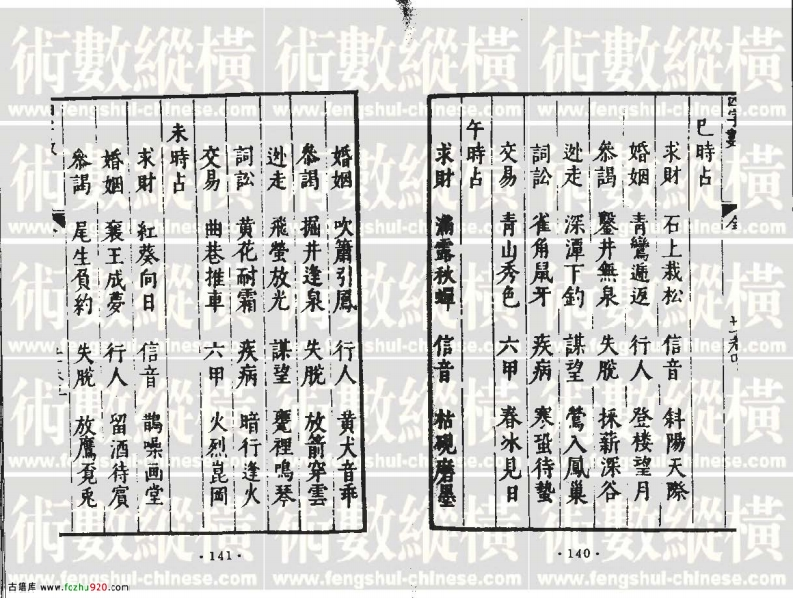 巳時占
求財 石上栽松 信音 斜陽天際
婚姻 青鸞遞返 行人 登楼望月
叅謁 鑿井無泉 失脫 採薪深谷
迯走 深潭下釣 謀望 鶯入鳳巢
詞訟 雀角鼠牙 疾病 寒蛩待蟄
交易 青山秀色 六甲 春冰見日
午時占
求財 滿露秋蟬 信音 枯硯磨墨
·140·
婚姻 吹簫引鳳 行人 黄犬音乖
叅謁 掘井逢泉 失脫 放箭穿雲
迯走 飛螢放光 謀望 甕裡鳴琴
詞訟 黄花耐霜 疾病 暗行逢火
交易 曲巷推車 六甲 火烈崑岡
未時占
求財 紅葵向日 信音 鵲噪画堂
婚姻 襄王成夢 行人 留酒待賓
叅謁 尾生負約 失脫 放鷹覔兎
·141·
術數縱橫
www.fengshui-chinese.com
古籍库 www.fczhu920.com